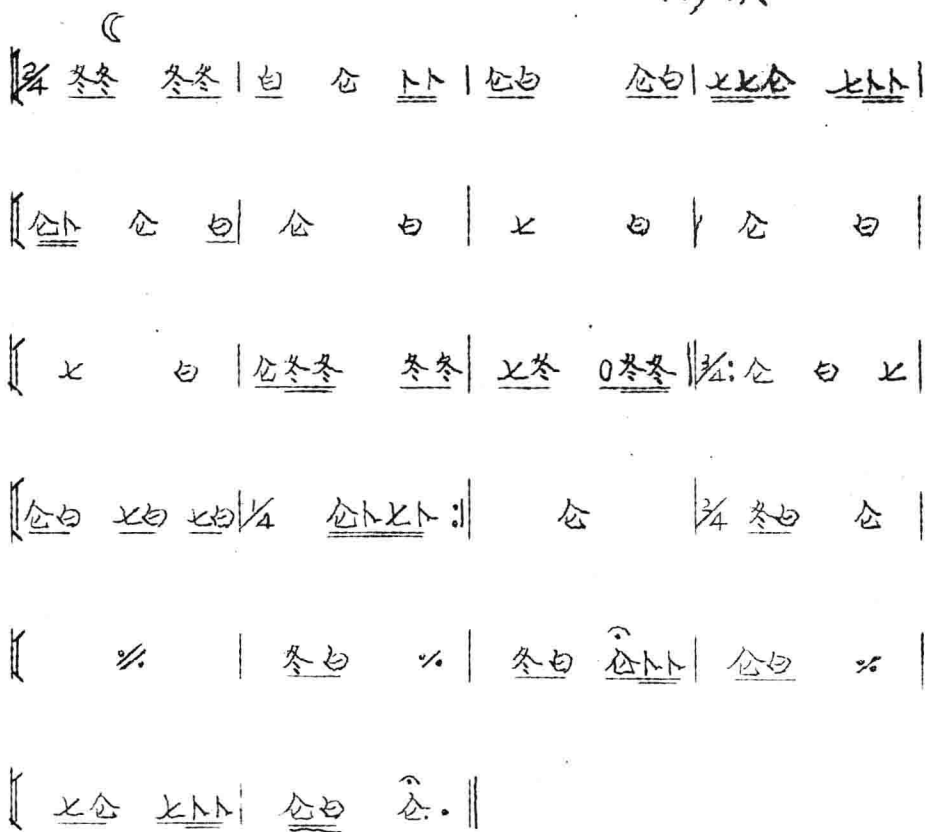 2/4 冬冬 冬冬 | 白 仑 卜卜 | 仑白 仑白 | 七七仑 七卜卜 |
仑卜 仑 白 | 仑 白 | 七 白 | 仑 白 |
七 白 | 仑冬冬 冬冬 | 七冬 0冬冬 ‖ 3/4: 仑 白 七 |
仑白 七白 七白 | 1/4 仑卜七卜 :‖ 仑 | 2/4 冬白 仑 |
% | 冬白 % | 冬白 仑卜卜 | 仑白 % |
七仑 七卜卜 | 仑白 仑. ‖